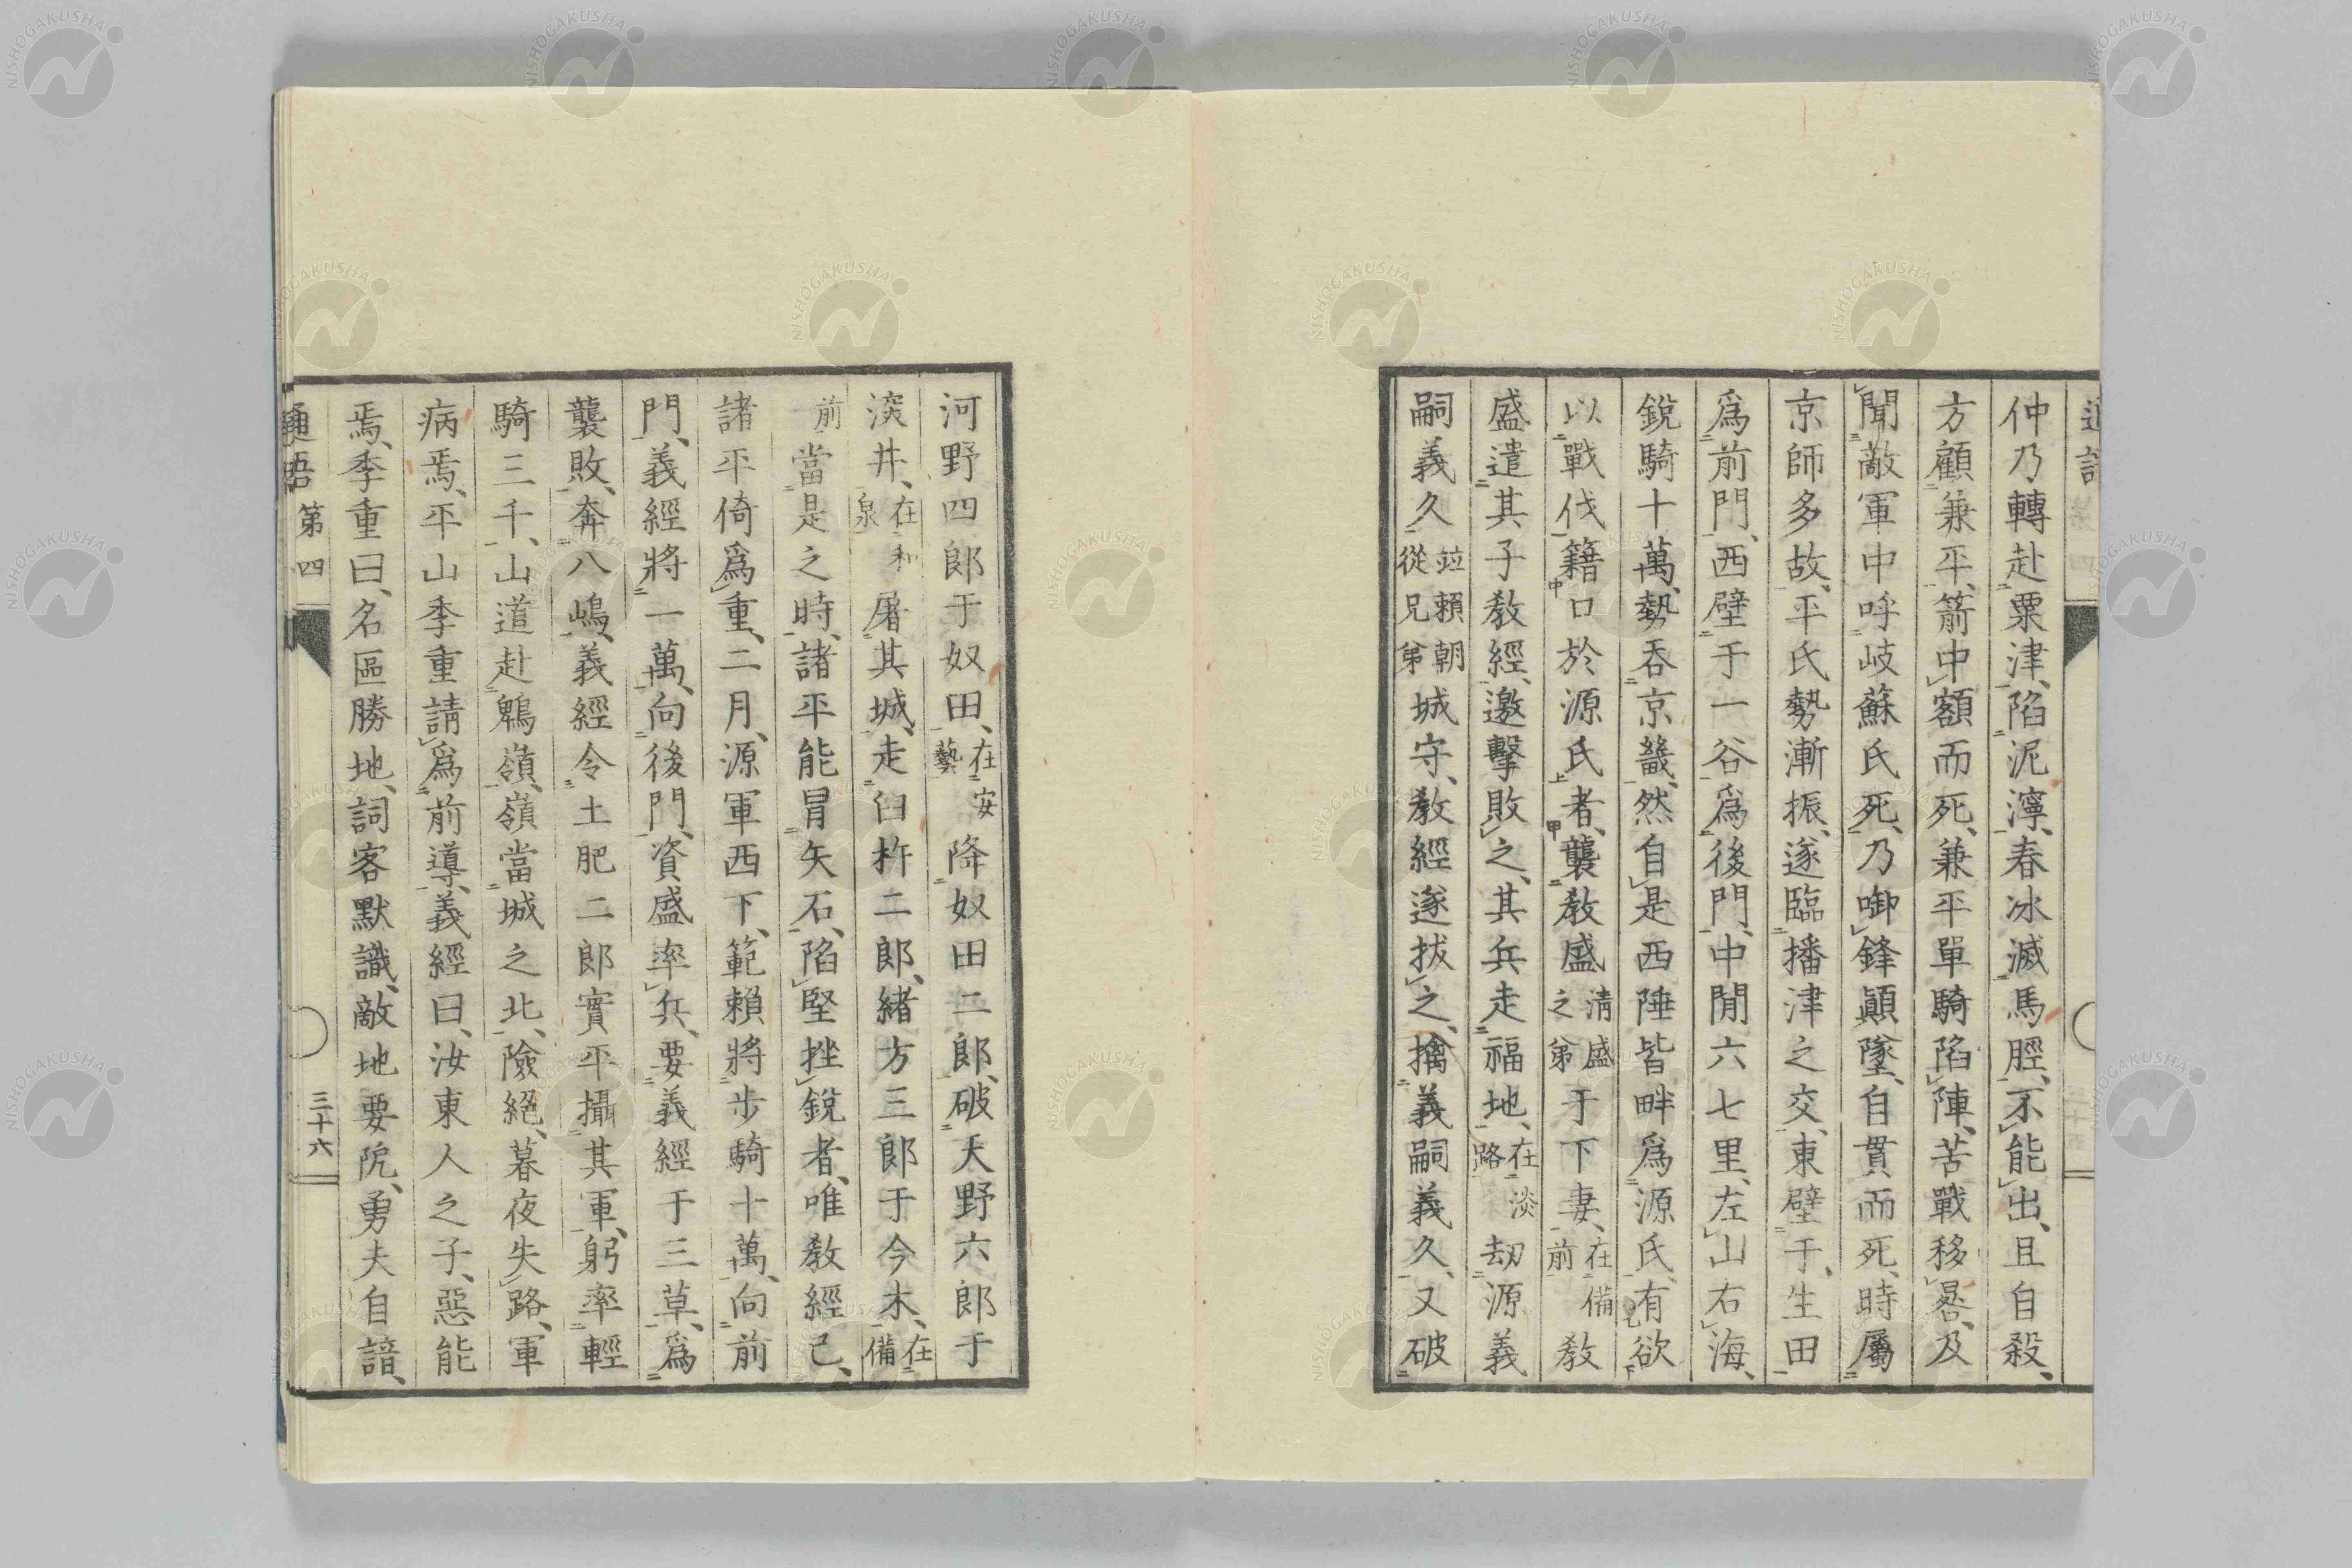 仲乃轉赴粟津、陷泥濘、春冰滅馬脛、不能出、且自殺、
方顧兼平、箭中額而死、兼平單騎陷陣、苦戰移晷、及
聞敵軍中呼岐蘇氏死、乃啣鋒顚墜、自貫而死、時屬
京師多故、平氏勢漸振、遂臨播津之交、東壁于生田
爲前門、西壁于一谷爲後門、中間六七里、左山右海、
銳騎十萬、勢吞京畿、然自是西陲皆畔爲源氏、有欲
以戰伐籍口於源氏者、襲敎盛清盛之弟于下妻、在備前敎
盛遣其子敎經、邀擊敗之、其兵走福地、在淡路劫源義
嗣義久竝賴朝從兄弟城守、敎經遂拔之、擒義嗣義久、又破
河野四郎于奴田、在安藝降奴田二郎、破天野六郎于
淡井、在和泉屠其城、走臼杵二郎、緒方三郎于今木、在備
前當是之時、諸平能冒矢石、陷堅挫銳者、唯敎經已、
諸平倚爲重、二月、源軍西下、範賴將步騎十萬、向前
門、義經將一萬、向後門、資盛率兵、要義經于三草、爲
襲敗、奔八嶋、義經令土肥二郎實平攝其軍、躬率輕
騎三千、山道赴鵯嶺、嶺當城之北、險絕、暮夜失路、軍
病焉、平山季重請爲前導、義經曰、汝東人之子、惡能
焉、季重曰、名區勝地、詞客默識、敵地要阨、勇夫自諳、
通語 第四
三十六
NISHOGAKUSHA